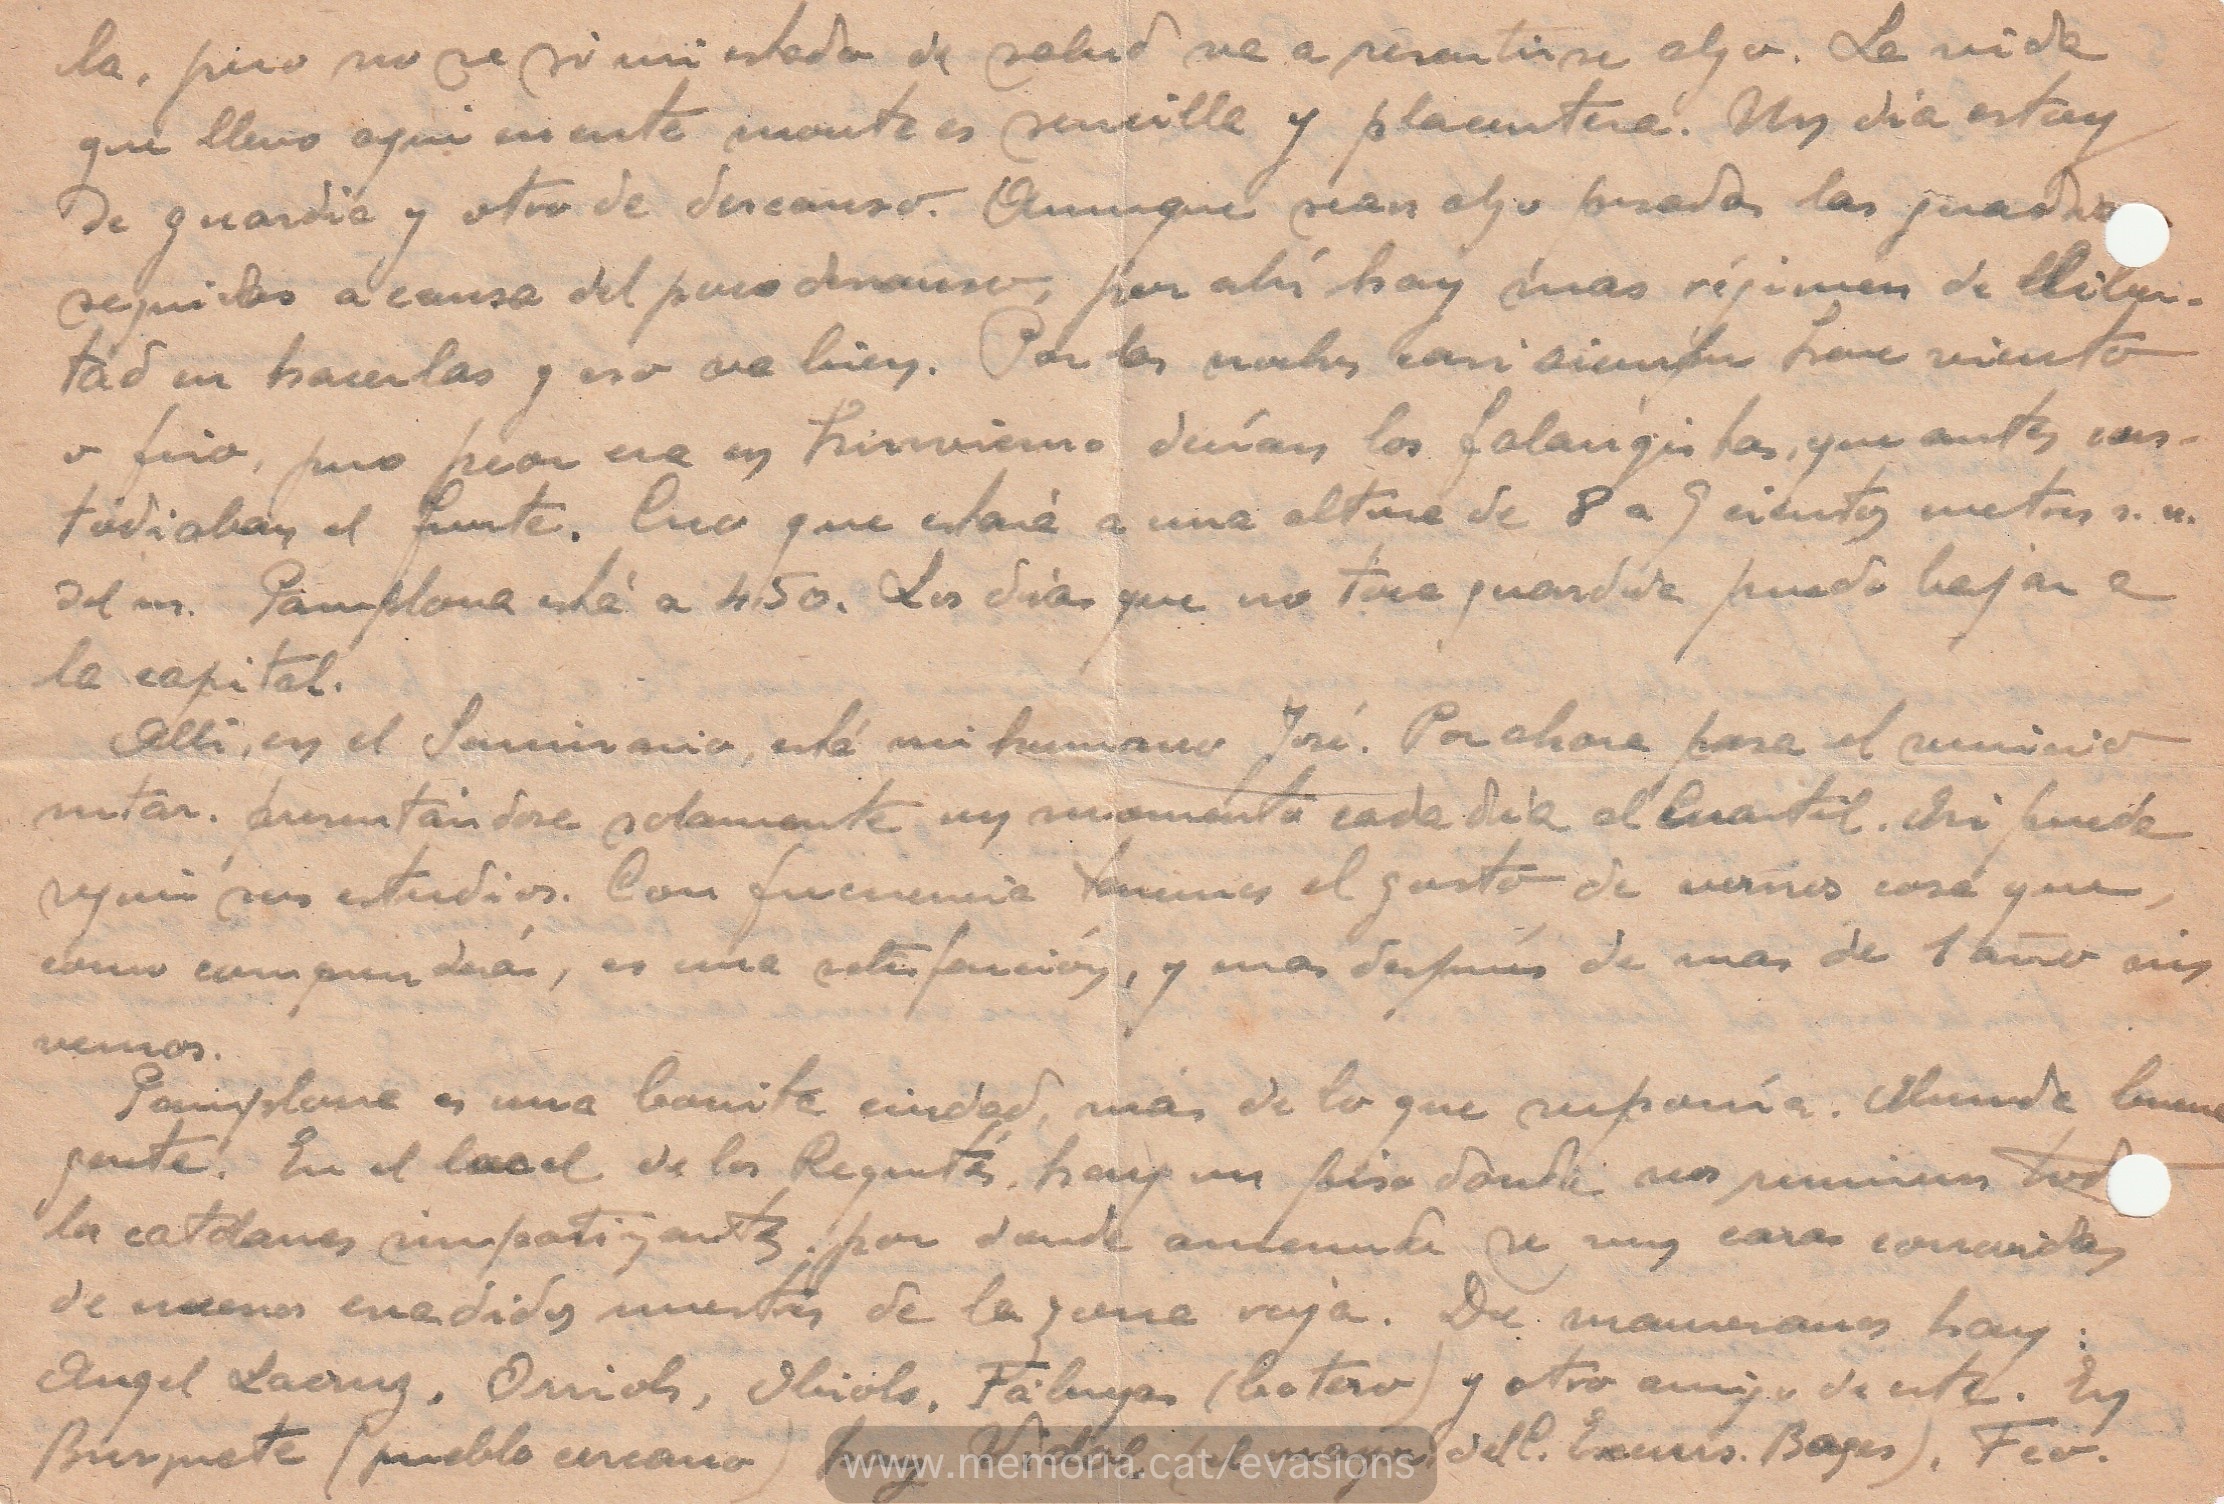 la, pero no se si mi estado de salud va a resentirse algo. La vida
que llevo aqui en este monte es sencilla y placentera. Un día estoy
de guardia y otro de descanso. Aunque sean algo pesadas las guardias
seguidas a causa del poco descanso, por ahí hay mas régimen de liber-
tad en hacerlas y eso va bien. Por las noches casi siempre hace viento
o frio, pero peor era en hinvierno decían los falangistas, que antes cus-
todiaban el fuerte. Creo que estará a una altura de 8 a 9 cientos metros s. n.
del m. Pamplona está a 450. Los días que no toca guardia puedo bajar a
la capital.
Alli, en el Seminario, está mi hermano José. Por ahora pasa el servicio
mitar. presentándose solamente un momento cada día al Cuartel. Asi puede
seguir sus estudios. Con frecuencia tenemos el gusto de vernos cosa que,
como comprenderás, es una satisfacción, y mas después de mas de 1 año sin
vernos.
Pamplona es una bonita ciudad, más de lo que suponía. Abunda buena
gente. En el local de los Requetés, hay un piso donde nos reunimos tod
los catalanes simpatizantes, por donde amenudo se ven caras conocidas
de nuevos evadidos nuestros de la zona roja. De manresanos hay:
Angel Lacruz, Orriols, Obiols, Fábregas (botero) y otro amigo de este. En
Burguete (pueblo cercano) hay Vidal, (el mayor del C. Excurs. Bages), Fco.
www.memoria.cat/evasions